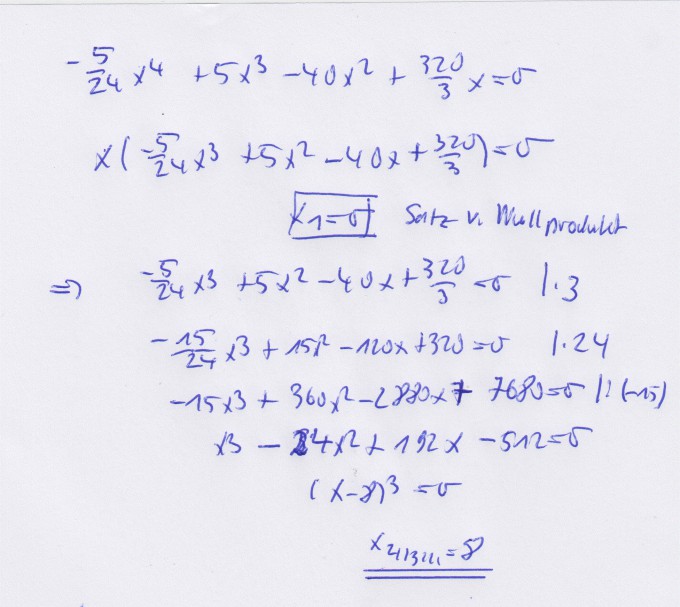 -5/24 x⁴ + 5x³ - 40x² + 320/3 x = 0
x(-5/24 x³ + 5x² - 40x + 320/3) = 0
x1 = 0 Satz v. Nullprodukt
=> -5/24 x³ + 5x² - 40x + 320/3 = 0 |·3
-15/24 x³ + 15x² - 120x + 320 = 0 |·24
-15x³ + 360x² - 2880x + 7680 = 0 |:(-15)
x³ - 24x² + 192x - 512 = 0
(x-8)³ = 0
x2/3/4 = 8